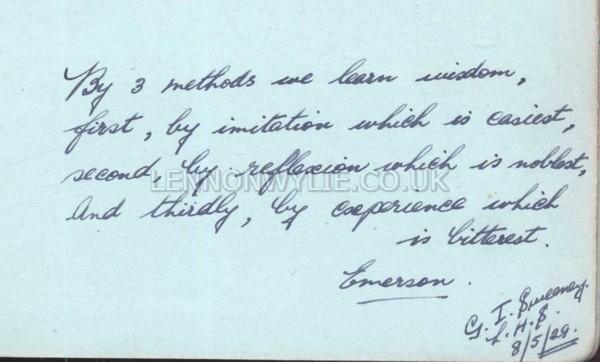 By 3 methods we learn wisdom,
first, by imitation which is easiest,
second, by reflexion which is noblest,
LENNONWYLIE.CO.UK
And thirdly, by experience which
is bitterest.
Emerson.
G. I. Sweeney.
L. H. S.
8/5/29.